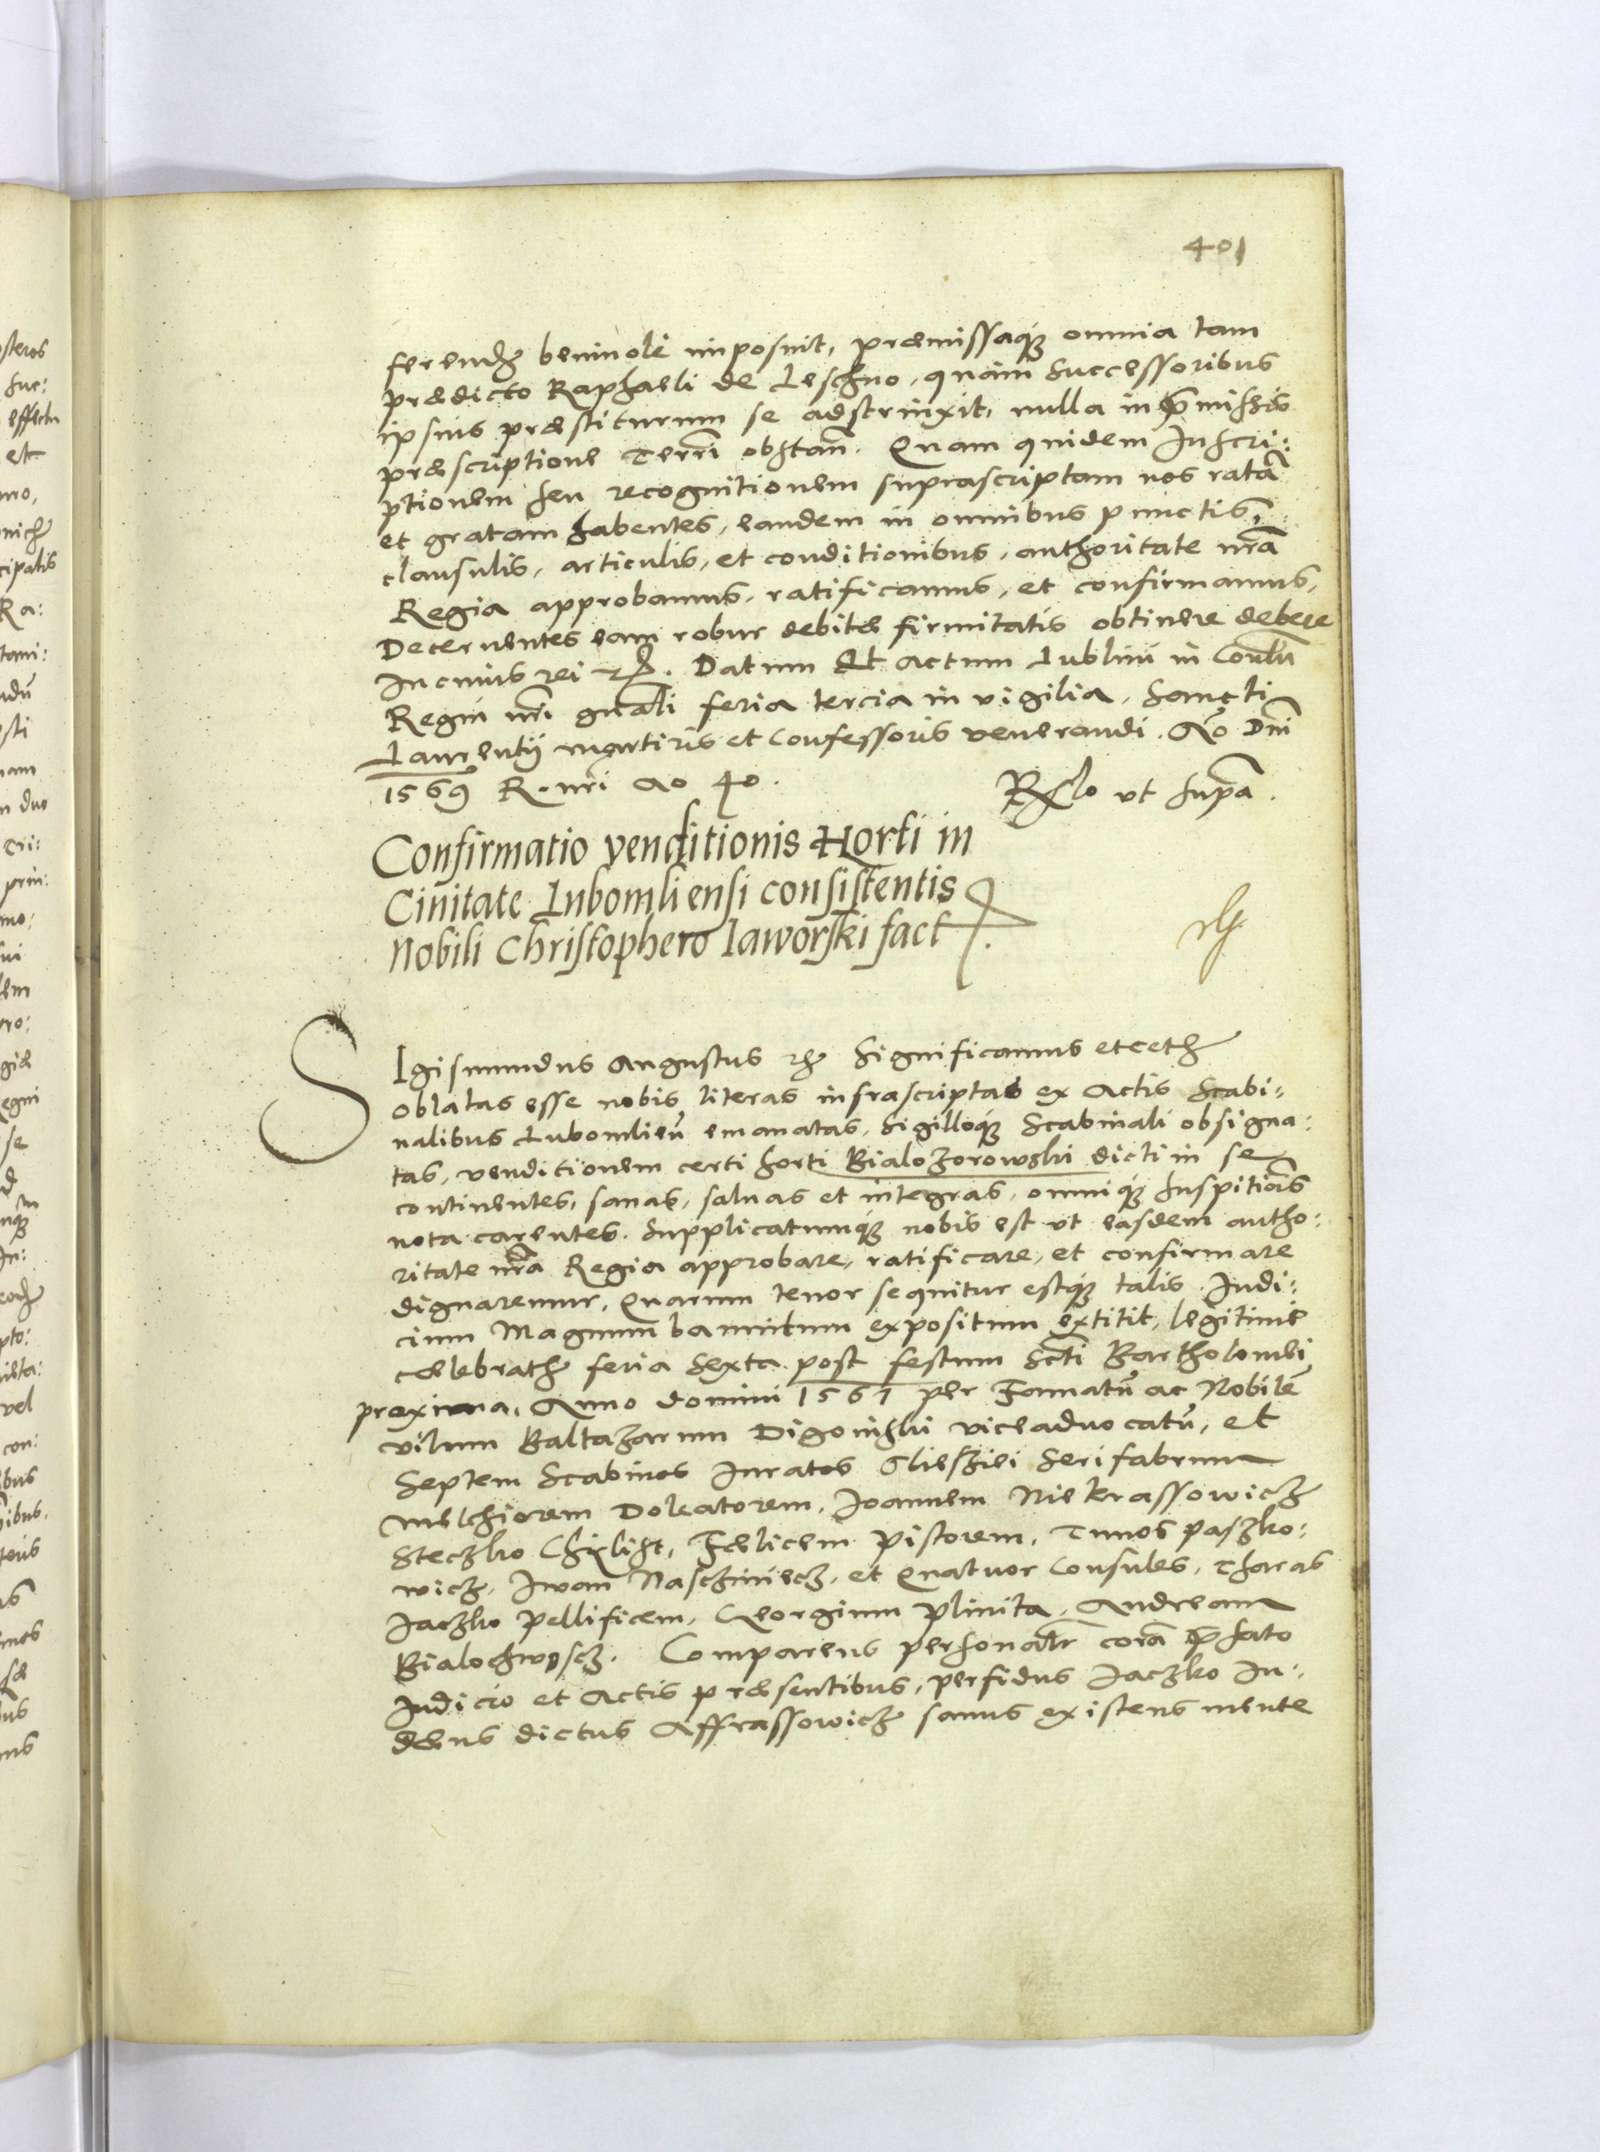 401
ferendã benivole imposuit, præmissaque omnia tam
prædicto Raphaeli de Leschno, quàm successoribus
ipsius præstiturum se adstrinxit, nulla in præmissis
præscriptione Terrñ obstañ. Quam quidem Inscri:
ptionem seu recognitionem suprascriptam nos ratã
et gratam habentes, eandem in omnibus punctis,
clausulis, articulis, et conditionibus, authoritate nrã
Regia approbamus, ratificamus, et confirmamus,
Decernentes eam robur debitæ firmitatis obtinere debere
In cuius rei etc. Datum Et actum Lublini in Conũtu
Regni nrĩ gnali feria tercia in vigilia Sancti
Laurentij martiris et Confessoris venerandi. Ao Dnĩ
1569 R. nrĩ ao 40.
Rlo ut supra.
Confirmatio venditionis Horti in
Civitate Lubomliensi consistentis
Nobili Christophero Iaworski fact
SIgismundus Augustus etc Significamus etceth
oblatas esse nobis literas infrascriptas ex Actis Scabi:
nalibus Lubomlieñ emanatas, Sigilloque Scabinali obsigna:
tas, venditionem certi horti Bialozorowski dicti in se
continentes, sanas, salvas et integras, omnique suspitiõis
nota carentes. Supplicatumque nobis est ut easdem autho:
ritate nrã Regia approbare, ratificare, et confirmare
dignaremur, Quarum tenor sequitur estque talis. Iudi:
cium Magnum bannitum expositum extitit, legitime
celebrath feria Sexta post festum Scti Bartholomei
proxima, Anno domini 1561 per Famatũ ac Nobilẽ
virum Baltazarum Digoinski viceadvocatũ, et
Septem Scabinos Iuratos Glieskiei Serifabrum
Melchiorem Doleatorem, Joannem Niekrassowicz
Steczko Chilist, Felicem Pistorem, Tunos paszko:
wicz, Iwan Nascziniecz, et Quatuor Consules, Tharas
Jaczko Pellificem, Georgium Plinita, Andream
Bialochwoscz. Comparens personaltr corã præfato
Iudicio et Actis præsentibus, perfidus Jaczko Iu:
dæus dictus Affrassowicz sanus existens mente